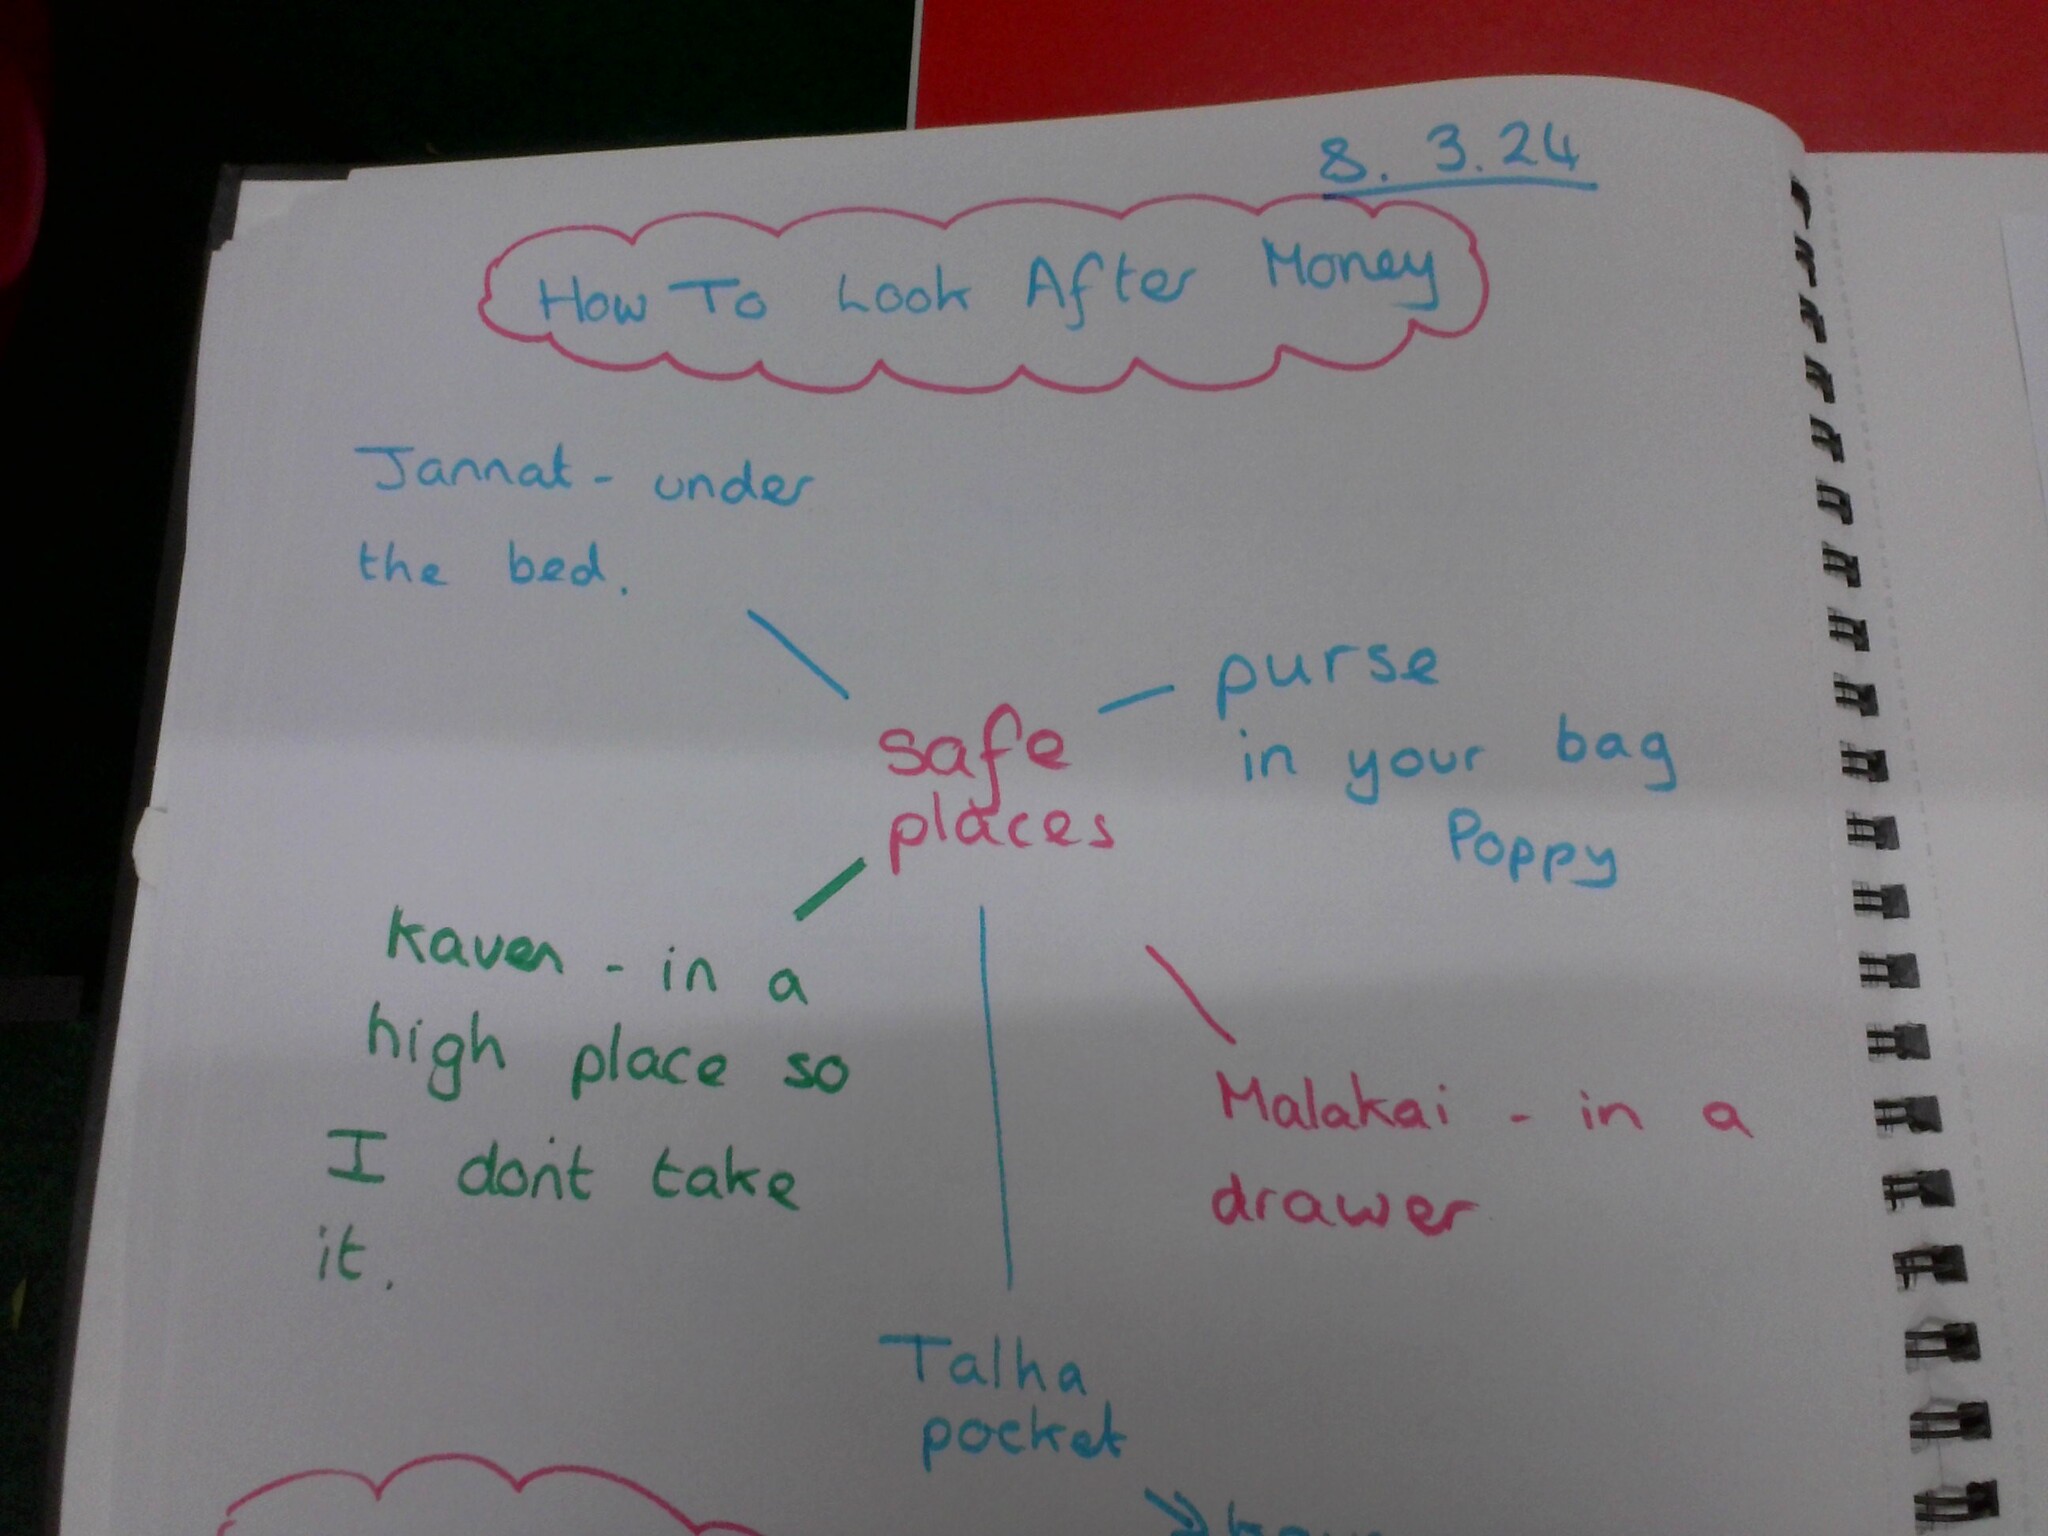 8. 3.24
How To Look After Money
Jannat - under
the bed.
purse
in your bag
Poppy
safe
places
Kaven - in a
high place so
I don't take
it.
Malakai - in a
drawer
Talha
pocket